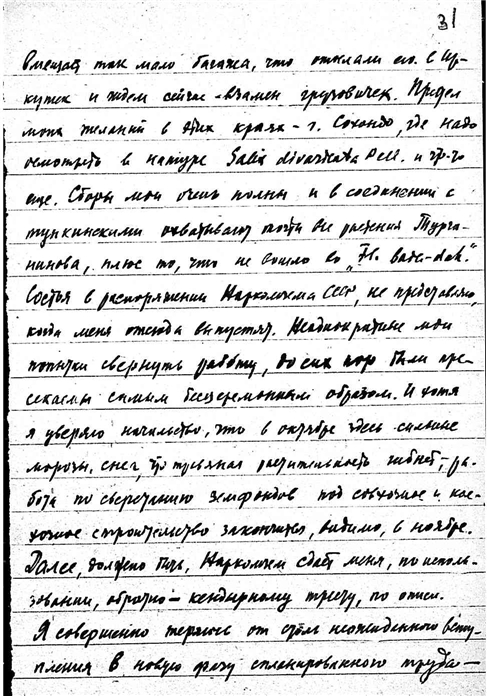 31
вмещает так мало багажа, что отослали его в Ир-
кутск и ждем сейчас взамен грузовичек. Предел
моих желаний в этих краях – г. Сохондо, где надо
осмотреть в натуре Salix divaricata Pall. и кр-го
еще. Сборы мои очень полны и в соединении с
тункинскими охватывают почти все растения Турча-
нинова, плюс то, что не вошло во "Fl. baic-dah."
Состоя в распоряжении Наркомзема СССР, не представляю,
когда меня отсюда выпустят. Неоднократные мои
попытки свернуть работу, до сих пор были пре-
секаемы самым бесцеремонным образом. И хотя
я уверяю начальство, что в октябре здесь сильные
морозы, снег, что травяная растительность гибнет, – ра-
бота по сверстанию земфондов под совхозное и кол-
хозное строительство закончится, видимо, в ноябре.
Далее, должно быть, Наркомзем сдаст меня, по исполь-
зовании, обратно – кендырному тресту, по описи.
Я совершенно теряюсь от столь неожиданного всту-
пления в новую фазу спланированного труда –